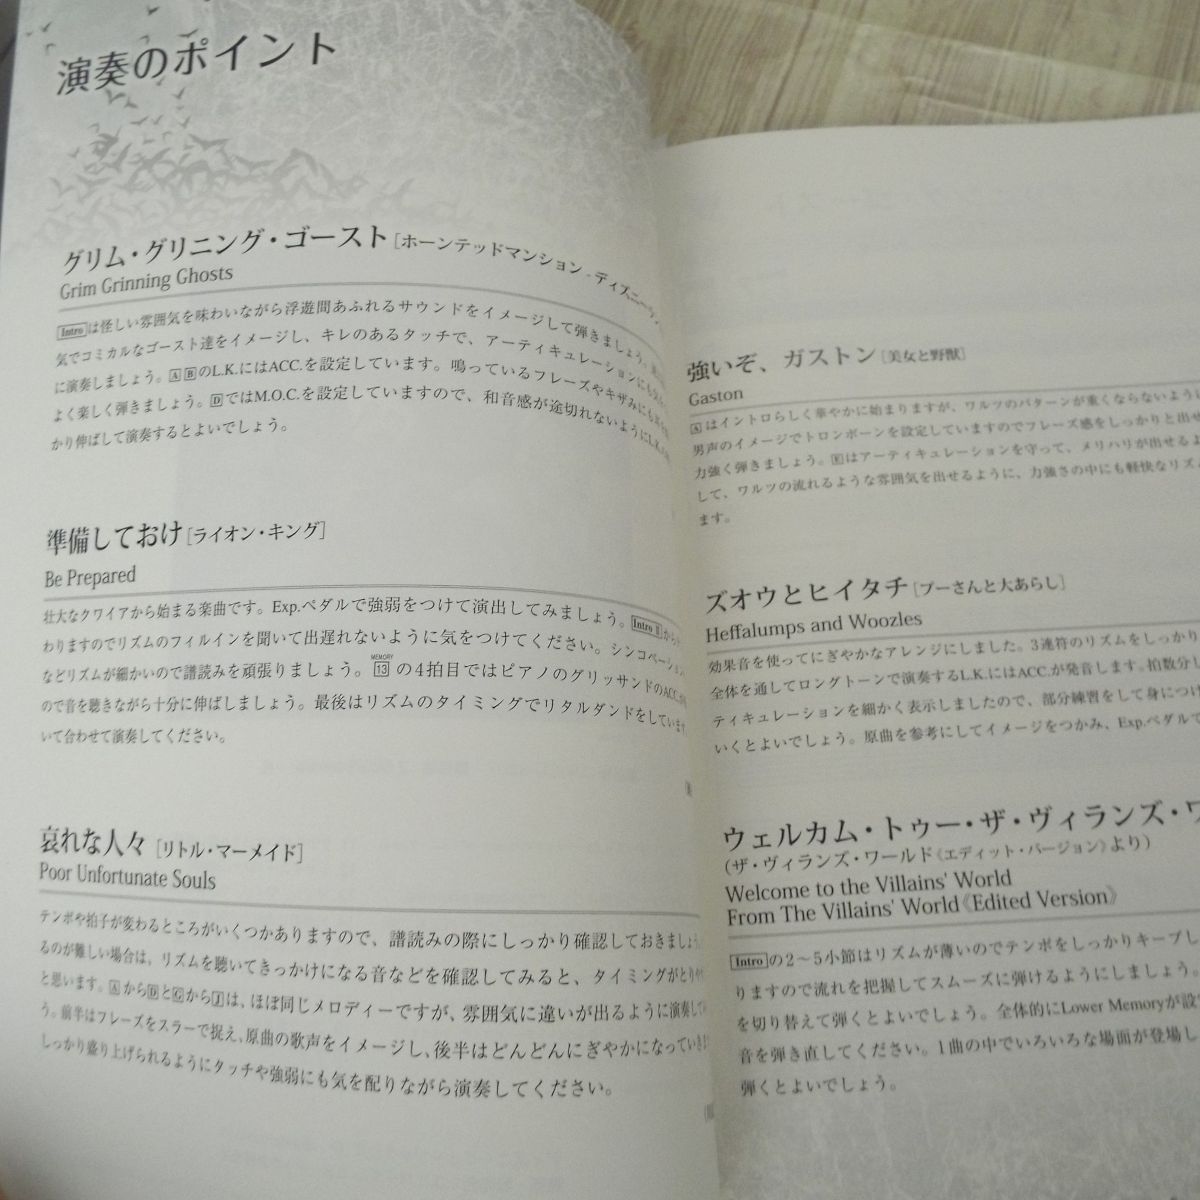 演奏のポイント
グリム・グリニング・ゴースト［ホーンテッドマンション - ディズニーラ
Grim Grinning Ghosts
Introは怪しい雰囲気を味わいながら浮遊間あふれるサウンドをイメージして弾きましょう。
気でコミカルなゴースト達をイメージし、キレのあるタッチで、アーティキュレーションにも
に演奏しましょう。A BのL.K.にはACC.を設定しています。鳴っているフレーズやキザみにも
よく楽しく弾きましょう。DではM.O.C.を設定していますので、和音感が途切れないようにL.K.
かり伸ばして演奏するとよいでしょう。
準備しておけ［ライオン・キング］
Be Prepared
壮大なクワイアから始まる楽曲です。Exp.ペダルで強弱をつけて演出してみましょう。Intro IIから
わりますのでリズムのフィルインを聞いて出遅れないように気をつけてください。シンコペーション
などリズムが細かいので譜読みを頑張りましょう。MEMORY 13 の4拍目ではピアノのグリッサンドのACC.が
ので音を聴きながら十分に伸ばしましょう。最後はリズムのタイミングでリタルダンドをしています
いて合わせて演奏してください。
哀れな人々［リトル・マーメイド］
Poor Unfortunate Souls
テンポや拍子が変わるところがいくつかありますので、譜読みの際にしっかり確認しておきましょう
るのが難しい場合は、リズムを聴いてきっかけになる音などを確認してみると、タイミングがとりや
と思います。AからDとGからJは、ほぼ同じメロディーですが、雰囲気に違いが出るように演奏して
う。前半はフレーズをスラーで捉え、原曲の歌声をイメージし、後半はどんどんにぎやかになっていき
しっかり盛り上げられるようにタッチや強弱にも気を配りながら演奏してください。
強いぞ、ガストン［美女と野獣］
Gaston
Aはイントロらしく華やかに始まりますが、ワルツのパターンが重くならないように
男声のイメージでトロンボーンを設定していますのでフレーズ感をしっかりと出せ
力強く弾きましょう。Eはアーティキュレーションを守って、メリハリが出せるよ
して、ワルツの流れるような雰囲気を出せるように、力強さの中にも軽快なリズム
ます。
ズオウとヒイタチ［プーさんと大あらし］
Heffalumps and Woozles
効果音を使ってにぎやかなアレンジにしました。3連符のリズムをしっかり
全体を通してロングトーンで演奏するL.K.にはACC.が発音します。拍数分し
ティキュレーションを細かく表示しましたので、部分練習をして身につけ
いくとよいでしょう。原曲を参考にしてイメージをつかみ、Exp.ペダルで
ウェルカム・トゥー・ザ・ヴィランズ・ワ
（ザ・ヴィランズ・ワールド《エディット・バージョン》より）
Welcome to the Villains' World
From The Villains' World《Edited Version》
Introの2〜5小節はリズムが薄いのでテンポをしっかりキープし
りますので流れを把握してスムーズに弾けるようにしましょう。
を切り替えて弾くとよいでしょう。全体的にLower Memoryが設
音を弾き直してください。1曲の中でいろいろな場面が登場し
弾くとよいでしょう。